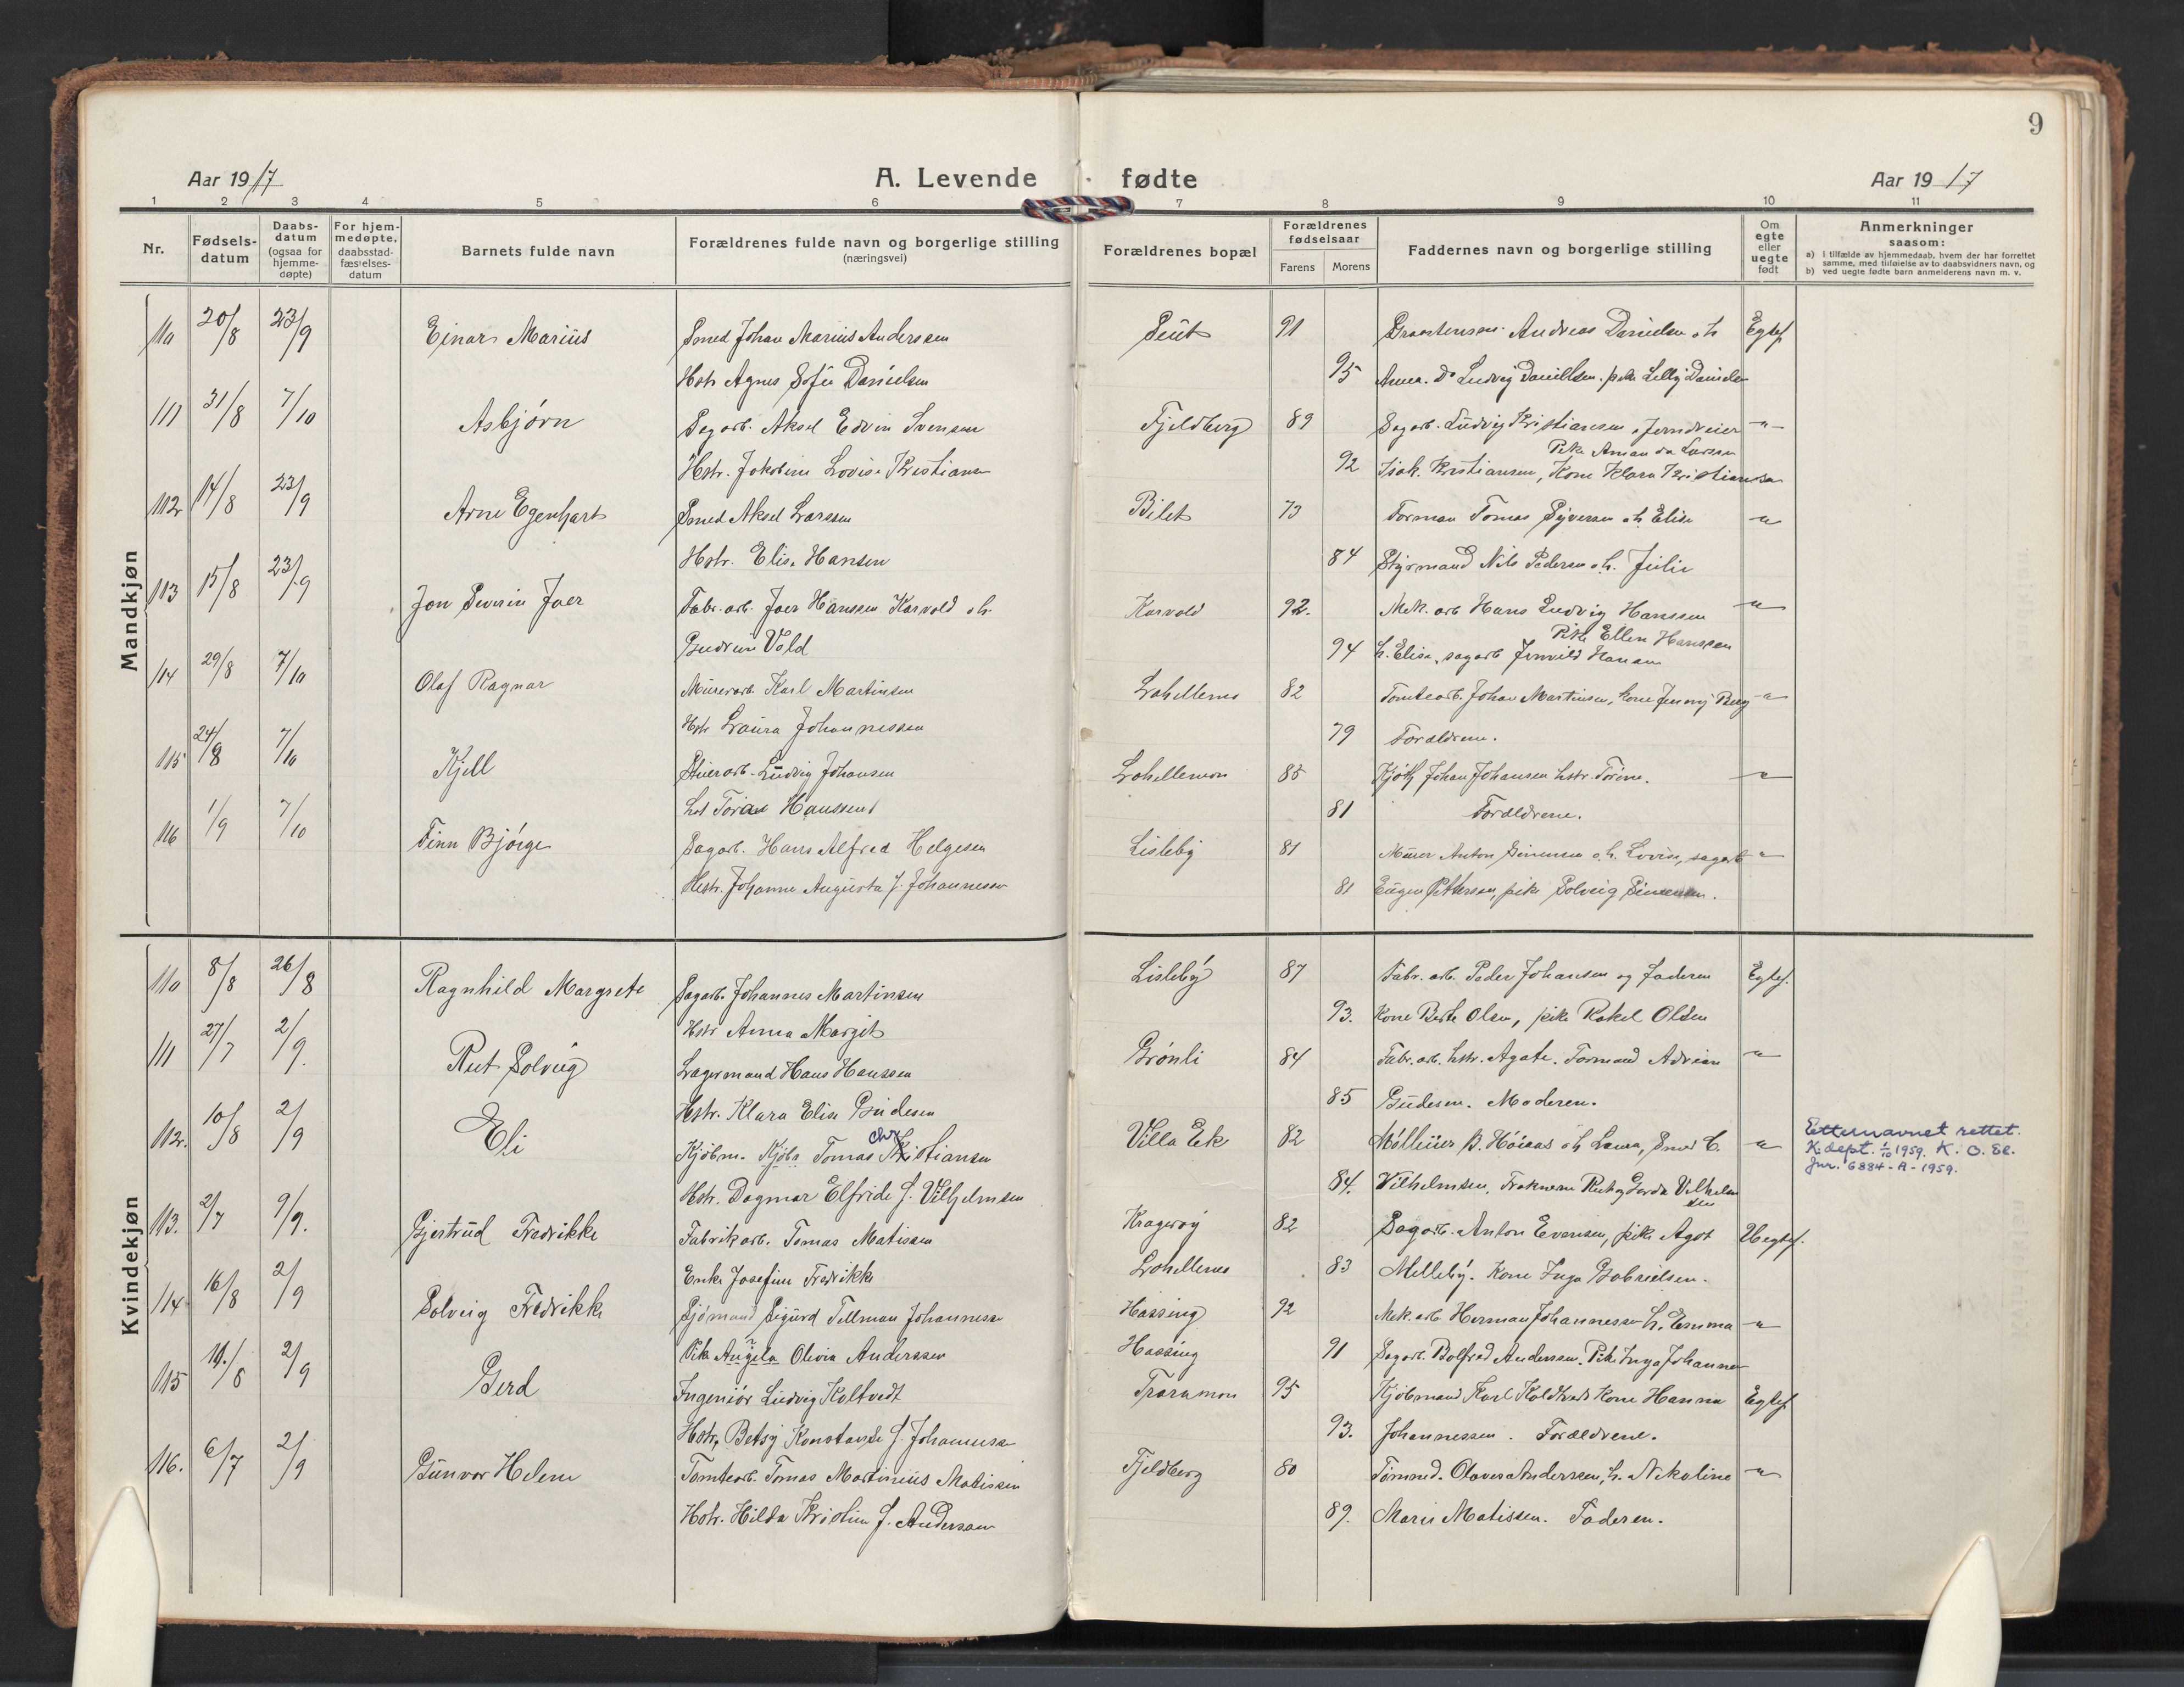 9
Aar 1917
A. Levende fødte
Aar 1917
1 2 3 4 5 6 7 8 9 10 11
Nr.
Fødsels-datum
Daabs-datum (ogsaa for hjemme-døpte)
For hjem-medøpte, daabsstad-fæstelses-datum
Barnets fulde navn
Forældrenes fulde navn og borgerlige stilling (næringsvei)
Forældrenes bopæl
Forældrenes fødselsaar
Farens Morens
Faddernes navn og borgerlige stilling
Om egte eller uegte født
Anmerkninger saasom:
a) i tilfælde av hjemmedaab, hvem der har forrettet samme, med tilføielse av to daabsvidners navn, og
b) ved uegte fødte barn anmelderens navn m. v.
Mandkjøn
110 20/8 23/9 Einar Marius Smed Johan Marius Anderssen 91 Andreas Danielsen o h Egtef
Hstr Agnes Sofie Danielsen 95 Anna. Do Ludvig Daniellsen. pike Lilly Danielsen
111 31/8 7/10 Asbjørn Sagarb. Aksel Edvin Svensen Fjeldberg 89 Sagarb. Ludvig Kristiansen, Jerndreier -"-
Pike Amanda Larssen
Hstr. Jakobine Lovise Kristiansen 92 Isak Kristiansen, Kone Klara Kristiansen
112 14/8 23/9 Arne Egenhart Smed Aksel Larssen Bilet 73 Forman Tomas Syversen o h Elise "
Hstr. Elise Hansen 84 Styrmand Nils Pedersen o h. Julie
113 15/8 23/9 Jon Severin Joer Fabr. arb. Joer Hanssen Karvold o h. Karvold 92. Mek. arb Hans Ludvig Hanssen "
Pike Ellen Hanssen
Gudrun Vold 94 h. Elise, sagarb
114 29/8 7/10 Olaf Ragnar Murerarb. Karl Martinsen Lahellemo 82 Tomtearb. Johan Martinsen, kone Jenny Berg "
Hstr Laura Johannessen 79 Forældrene.
115 24/8 7/10 Kjell Ludvig Johansen Lahellemoen 85 Johan Johansen hstr. "
Hanssen 81 Forældrene.
116 1/9 7/10 Finn Bjørge Sagarb. Hans Alfred Helgesen Lisleby 81 Murer Anton Simensen o. h. Lovise, sagarb "
Hstr. Johanne Augusta f. Johannessen 81 Eugen Pettersen, pike Solveig Simensen.
Kvindekjøn
110 8/8 26/8 Ragnhild Margrete Sagarb. Johannes Martinsen Lisleby 87 Fabr. arb. Peder Johansen og faderen Egtef.
Hstr Anna Margit 93. Kone Berte Olsen, pike Rakel Olsen
111 27/7 2/9. Rut Solveig Lagermand Hans Hanssen Grønli 84 Fabr. arb. hstr. Agate. Formand Adrian "
Hstr. Klara Elise Gudesen 85 Gudesen. Moderen.
112. 10/8 2/9 Eli Kjøbm. Tomas Chr Kristiansen Villa Eik 82 Møller B. Høiaas o h Laura, Smed C. "
Etternavnet rettet.
K. dept. 1/10 1959. K. O. Se.
Jnr. 6884-A-1959.
Hstr. Dagmar Elfride f. Vilhelmsen 84. Vilhelmsen, Frøknerne Rut og Gerda Vilhelmsen
113. 2/7 9/9. Gjertrud Fredrikke Fabrikarb. Tomas Matisen Kragerøy 82 Sagarb. Anton Evensen, pike Agot Uegtef.
Enke Josefine Fredrikke Lahellemo 83 Melleby. Kone Inga Gabrielsen.
114 16/8 2/9 Solveig Fredrikke Sjømand Sigurd Tellman Johannessen Hassing 92 Mek. arb Herman Johannessen h. Emma "
Pike Angela Olivia Anderssen Hassing 91 Sagarb. Bolfred Anderssen. Pike Inga Johannessen
115 2/9 Gerd Ingeniør Ludvig Koltvedt Traramoen 95 Kjøbmand Karl Koldtvedt Kone Hanna Egtef
Hstr. Betsy Konstanse f. Johannessen 93. Johannessen. Forældrene.
116. 6/7 2/9 Gunvor Helene Tomtearb. Tomas Martinius Matissen Fjeldberg 80 Tømmd. Olaves Anderssen, h. Nikoline "
Hstr. Hilda Kristine f. Anderssen 89. Marie Matissen. Faderen.